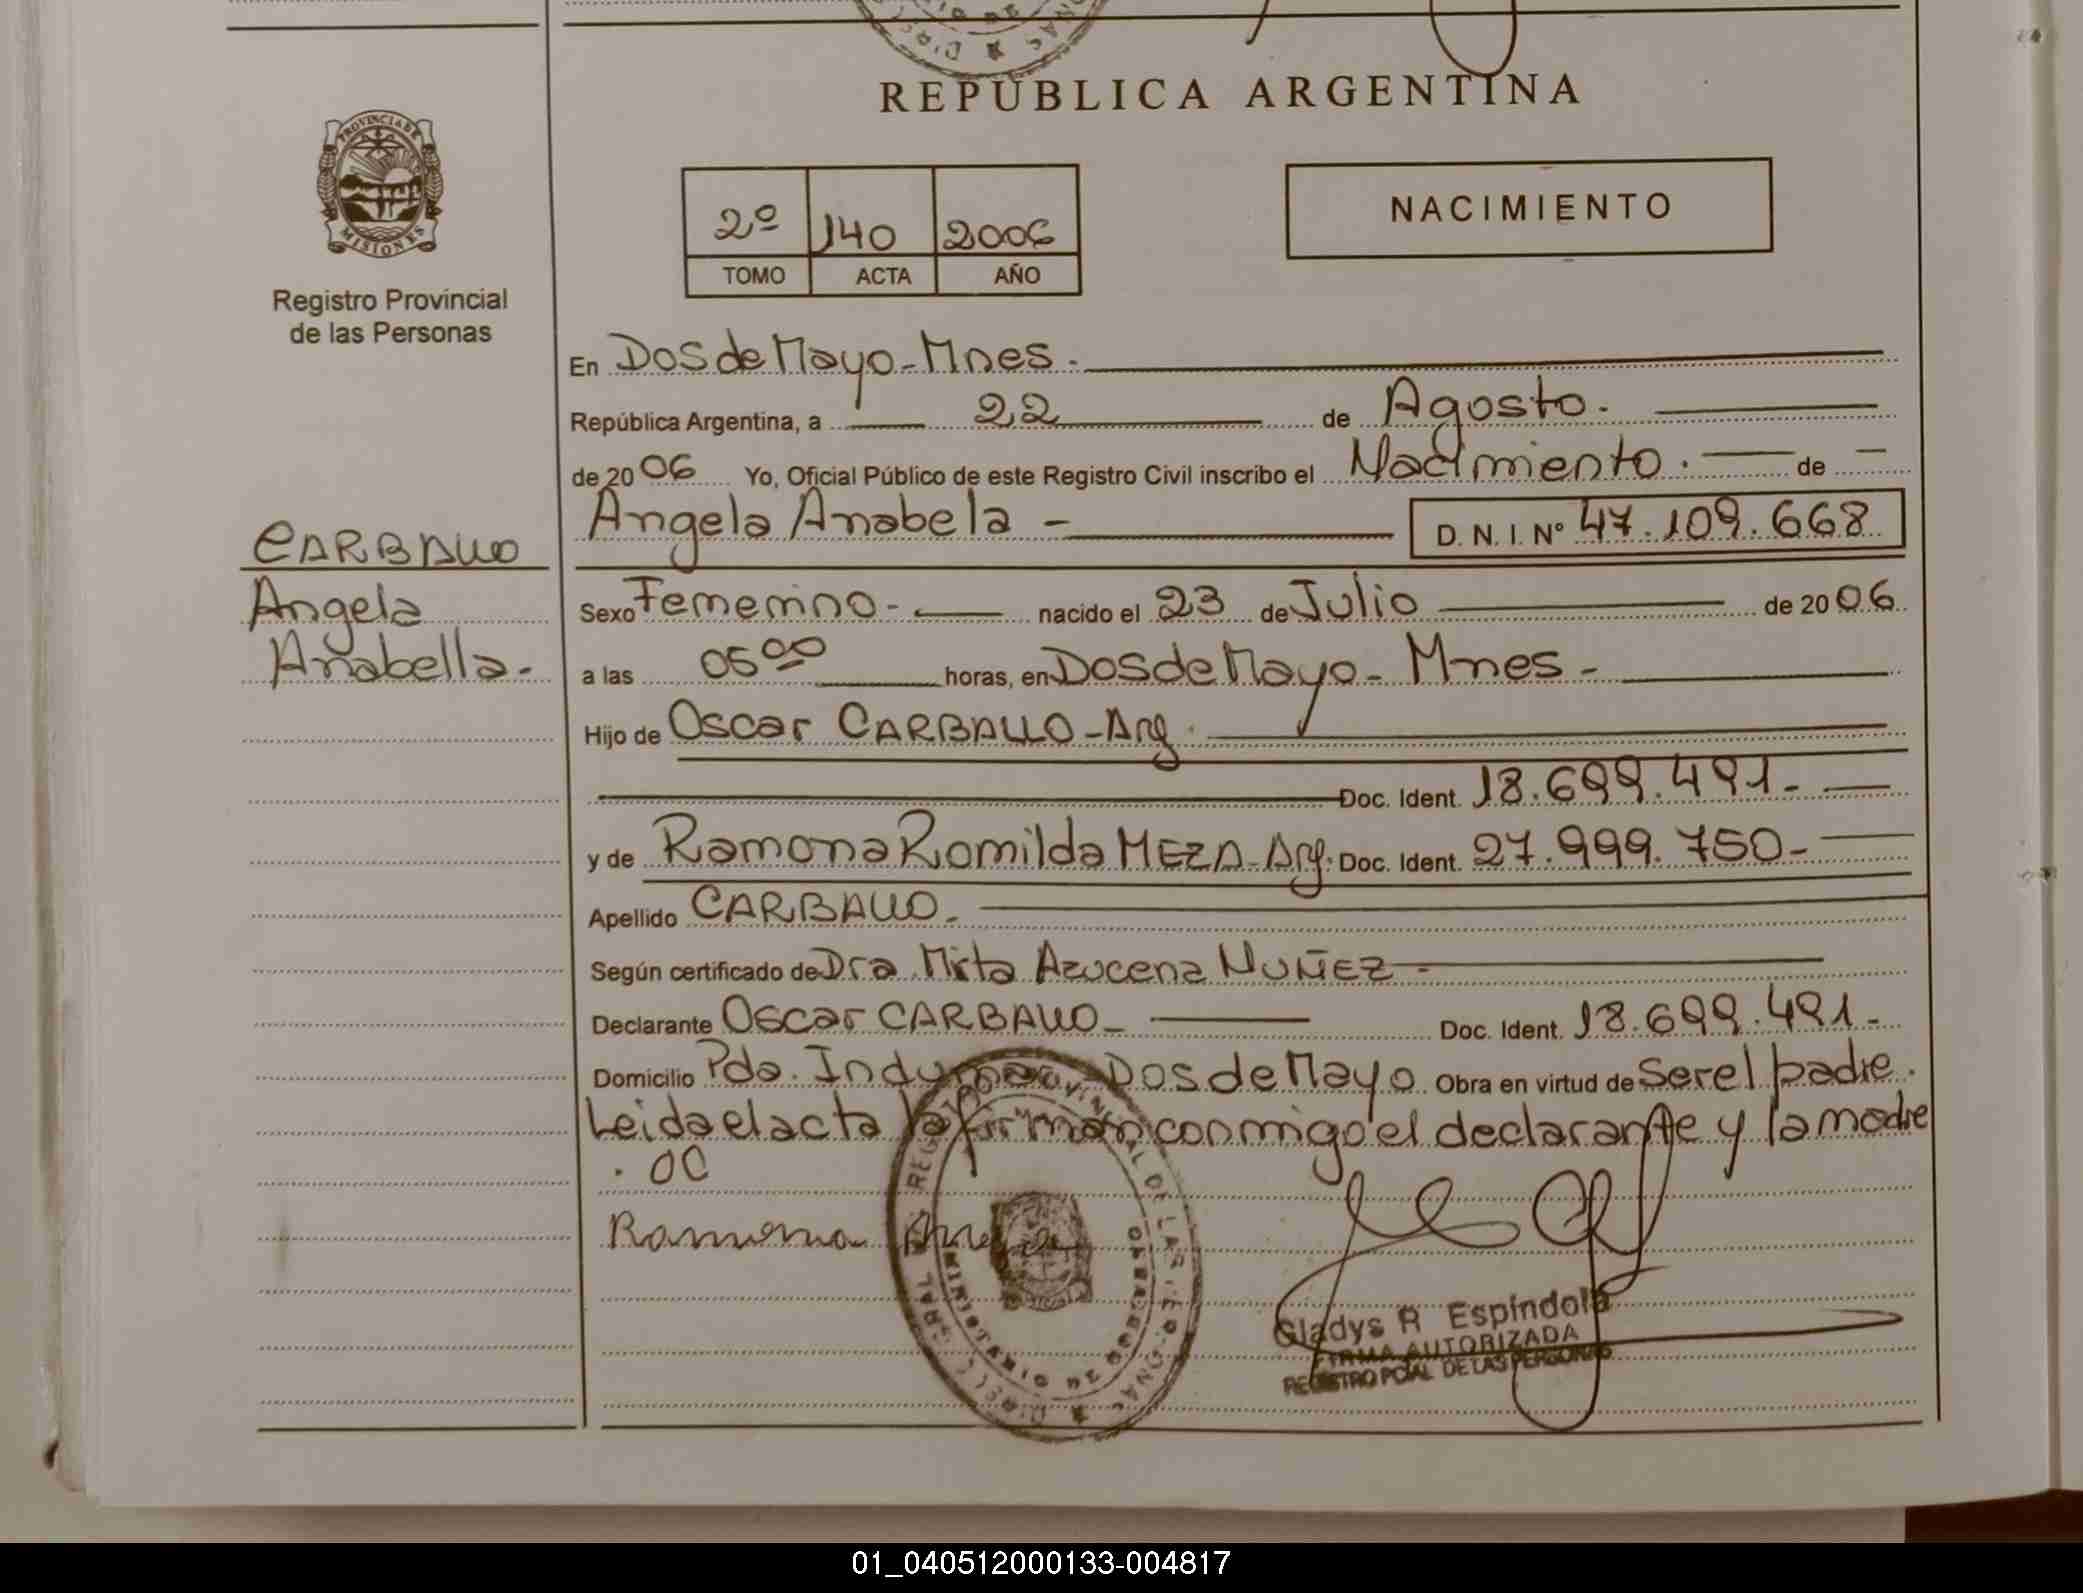 REPÚBLICA ARGENTINA
PROVINCIA DE
MISIONES
Registro Provincial
de las Personas
2º 140 2006
TOMO ACTA AÑO
NACIMIENTO
En Dos de Mayo - Mnes -
República Argentina, a 22 de Agosto.
de 2006 Yo, Oficial Público de este Registro Civil inscribo el Nacimiento. de
Angela Anabela - D. N. I. Nº 47.109.668
CARBALLO
Angela
Anabella.
Sexo Femenino - nacido el 23 de Julio de 2006
a las 05 00 horas, en Dos de Mayo - Mnes -
Hijo de Oscar CARBALLO - Arg.
Doc. Ident. 18.699.491 -
y de Ramona Romilda MEZA - Arg. Doc. Ident. 27.999.750 -
Apellido CARBALLO -
Según certificado de Dra Mirta Azucena NUÑEZ -
Declarante Oscar CARBALLO - Doc. Ident. 18.699.491 -
Domicilio Pda. Dos de Mayo Obra en virtud de Ser el padre.
Leida el acta la firman conmigo el declarante y la madre
. OC
Ramona
Gladys R Espíndola
FIRMA AUTORIZADA
REGISTRO PCIAL DE LAS PERSONAS
01_040512000133-004817